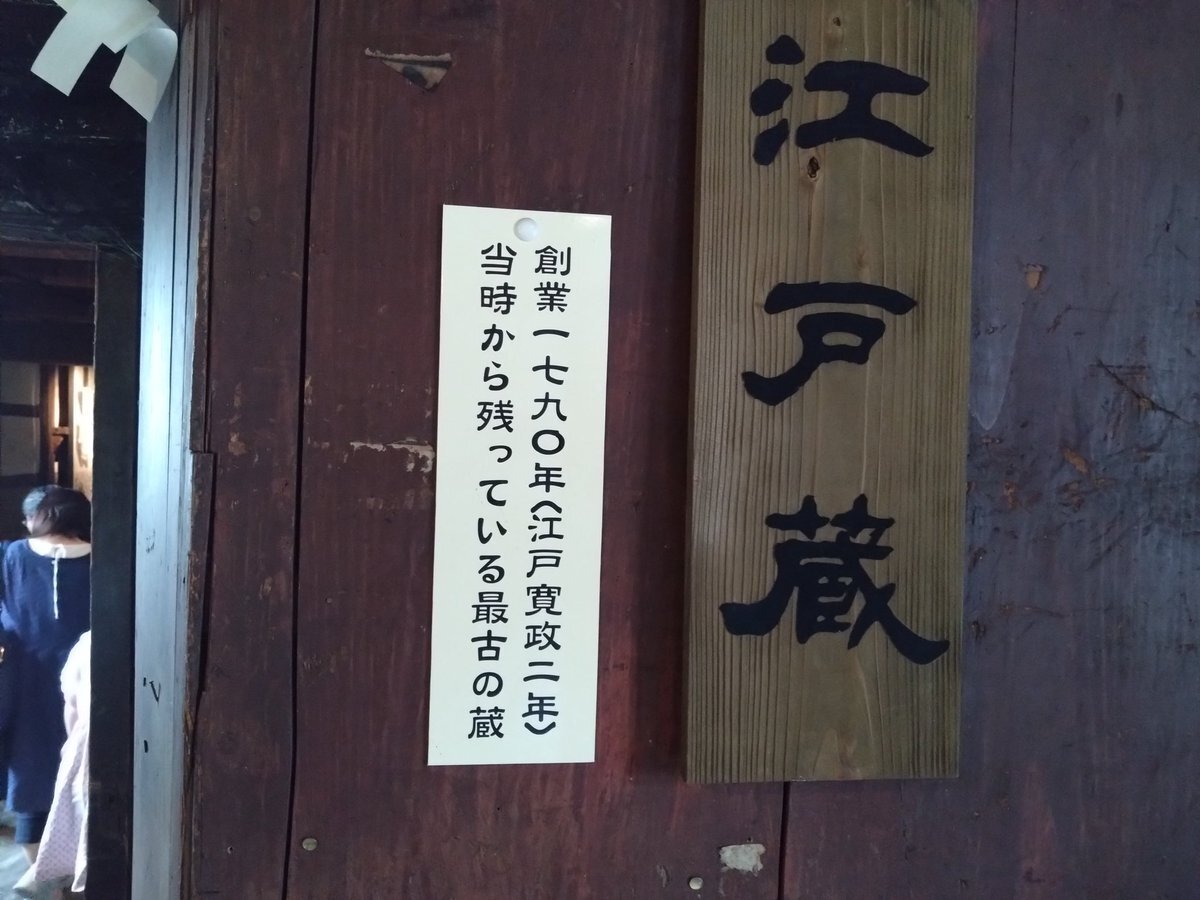 江戸蔵
創業一七九〇年(江戸寛政二年)
当時から残っている最古の蔵